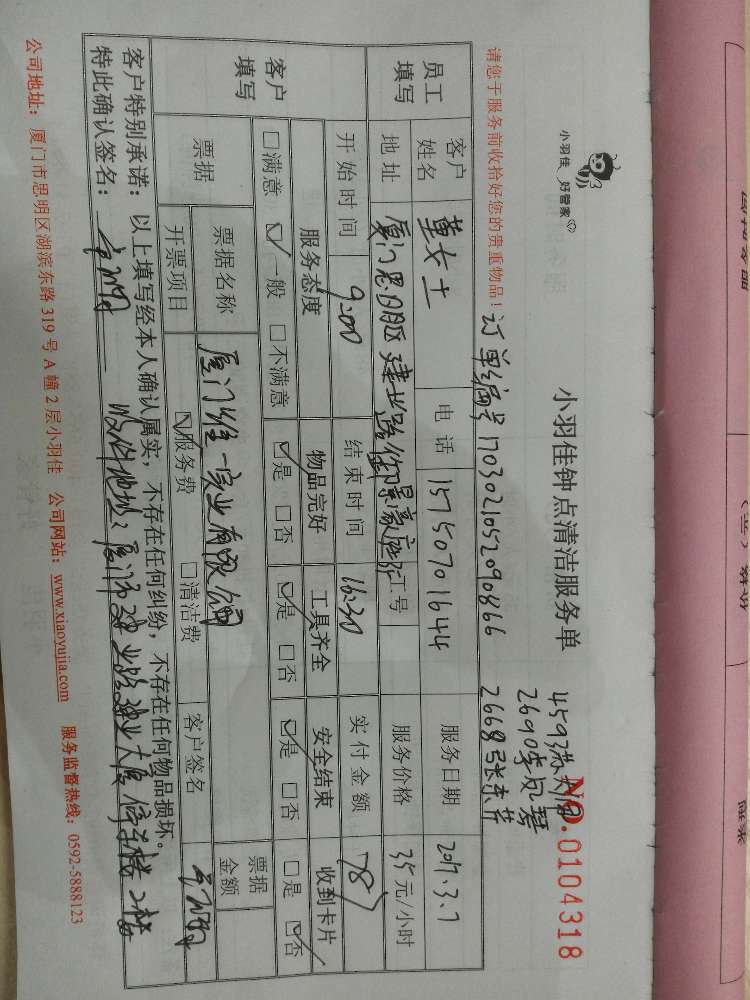 小羽佳 好管家
小羽佳钟点清洁服务单
NO.0104318
2690李凤琴
请您于服务前收拾好您的贵重物品！ 订单编号 1703021052090866
员工填写
客户姓名 董女士 电话 15750701644 服务日期 2017.3.7
地址 厦门思明区建业路御景豪庭 工号 服务价格 35元/小时
开始时间 9:00 结束时间 16:30 实付金额 787
客户填写
服务态度 物品完好 工具齐全 安全结束 收到卡片
□满意 ☑一般 □不满意 ☑是 □否 ☑是 □否 ☑是 □否 □是 ☑否
票据 票据名称 厦门 实业有限公司 票据金额
开票项目 ☑服务费 □清洁费 客户签名
客户特别承诺：以上填写经本人确认属实，不存在任何纠纷，不存在任何物品损坏。
特此确认签名： 收件地址：厦门市建业路建业大厦 2楼
公司地址：厦门市思明区湖滨东路 319 号 A 幢 2 层小羽佳 公司网站：www.xiaoyujia.com 服务监督热线：0592-5888123